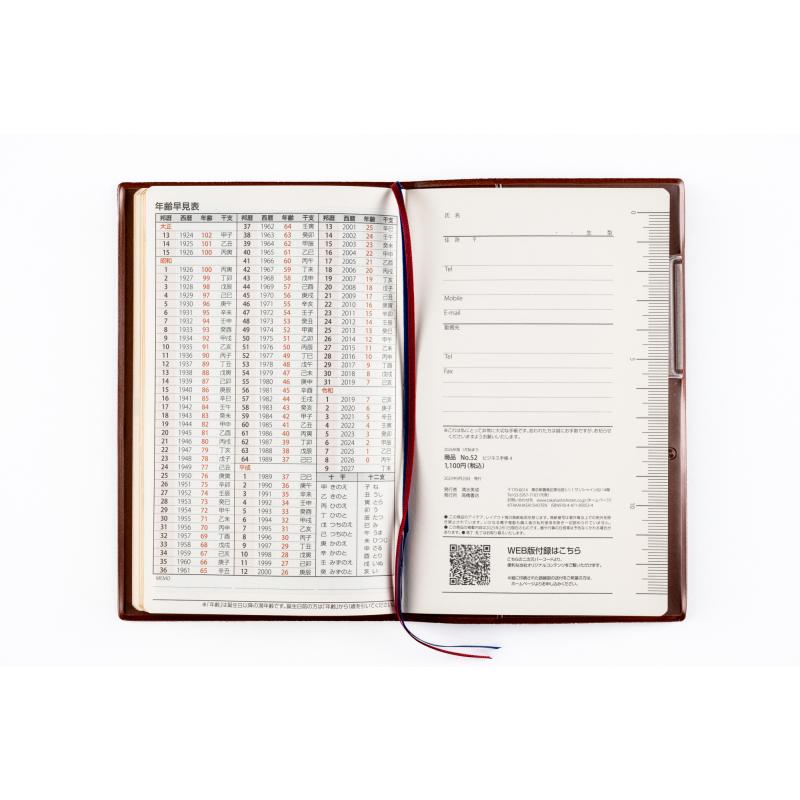 年齢早見表
邦暦 西暦 年齢 干支
大正
13 1924 102 甲子
14 1925 101 乙丑
15 1926 100 丙寅
昭和
1 1926 100 丙寅
2 1927 99 丁卯
3 1928 98 戊辰
4 1929 97 己巳
5 1930 96 庚午
6 1931 95 辛未
7 1932 94 壬申
8 1933 93 癸酉
9 1934 92 甲戌
10 1935 91 乙亥
11 1936 90 丙子
12 1937 89 丁丑
13 1938 88 戊寅
14 1939 87 己卯
15 1940 86 庚辰
16 1941 85 辛巳
17 1942 84 壬午
18 1943 83 癸未
19 1944 82 甲申
20 1945 81 乙酉
21 1946 80 丙戌
22 1947 79 丁亥
23 1948 78 戊子
24 1949 77 己丑
25 1950 76 庚寅
26 1951 75 辛卯
27 1952 74 壬辰
28 1953 73 癸巳
29 1954 72 甲午
30 1955 71 乙未
31 1956 70 丙申
32 1957 69 丁酉
33 1958 68 戊戌
34 1959 67 己亥
35 1960 66 庚子
36 1961 65 辛丑
邦暦 西暦 年齢 干支
37 1962 64 壬寅
38 1963 63 癸卯
39 1964 62 甲辰
40 1965 61 乙巳
41 1966 60 丙午
42 1967 59 丁未
43 1968 58 戊申
44 1969 57 己酉
45 1970 56 庚戌
46 1971 55 辛亥
47 1972 54 壬子
48 1973 53 癸丑
49 1974 52 甲寅
50 1975 51 乙卯
51 1976 50 丙辰
52 1977 49 丁巳
53 1978 48 戊午
54 1979 47 己未
55 1980 46 庚申
56 1981 45 辛酉
57 1982 44 壬戌
58 1983 43 癸亥
59 1984 42 甲子
60 1985 41 乙丑
61 1986 40 丙寅
62 1987 39 丁卯
63 1988 38 戊辰
64 1989 37 己巳
平成
1 1989 37 己巳
2 1990 36 庚午
3 1991 35 辛未
4 1992 34 壬申
5 1993 33 癸酉
6 1994 32 甲戌
7 1995 31 乙亥
8 1996 30 丙子
9 1997 29 丁丑
10 1998 28 戊寅
11 1999 27 己卯
12 2000 26 庚辰
邦暦 西暦 年齢 干支
13 2001 25 辛巳
14 2002 24 壬午
15 2003 23 癸未
16 2004 22 甲申
17 2005 21 乙酉
18 2006 20 丙戌
19 2007 19 丁亥
20 2008 18 戊子
21 2009 17 己丑
22 2010 16 庚寅
23 2011 15 辛卯
24 2012 14 壬辰
25 2013 13 癸巳
26 2014 12 甲午
27 2015 11 乙未
28 2016 10 丙申
29 2017 9 丁酉
30 2018 8 戊戌
31 2019 7 己亥
令和
1 2019 7 己亥
2 2020 6 庚子
3 2021 5 辛丑
4 2022 4 壬寅
5 2023 3 癸卯
6 2024 2 甲辰
7 2025 1 乙巳
8 2026 0 丙午
9 2027 丁未
十干 十二支
甲 きのえ 子 ね
乙 きのと 丑 うし
丙 ひのえ 寅 とら
丁 ひのと 卯 う
戊 つちのえ 辰 たつ
己 つちのと 巳 み
庚 かのえ 午 うま
辛 かのと 未 ひつじ
壬 みずのえ 申 さる
癸 みずのと 酉 とり
戌 いぬ
亥 い
MEMO
※「年齢」は誕生日以降の満年齢です。誕生日前の方は「年齢」から1歳を引いてください
氏名
・ ・ 生 型
住所 〒
Tel
Mobile
E-mail
勤務先
Tel
Fax
※これは私にとって非常に大切な手帳です。拾われた方は誠にお手数ですが、お知らせ
くださいますようお願いいたします。
2026年版 1月始まり
商品 No.52 ビジネス手帳 4
1,100円(税込)
2025年9月20日 発行
発行者 清水美成
発行所 高橋書店
WEB版付録はこちら
こちらの二次元バーコードより、
便利な当社オリジナルコンテンツをご覧いただけます。
※紙に印刷された路線図の送付をご希望の方は、
ホームページよりお申し込みください。
0
5
10